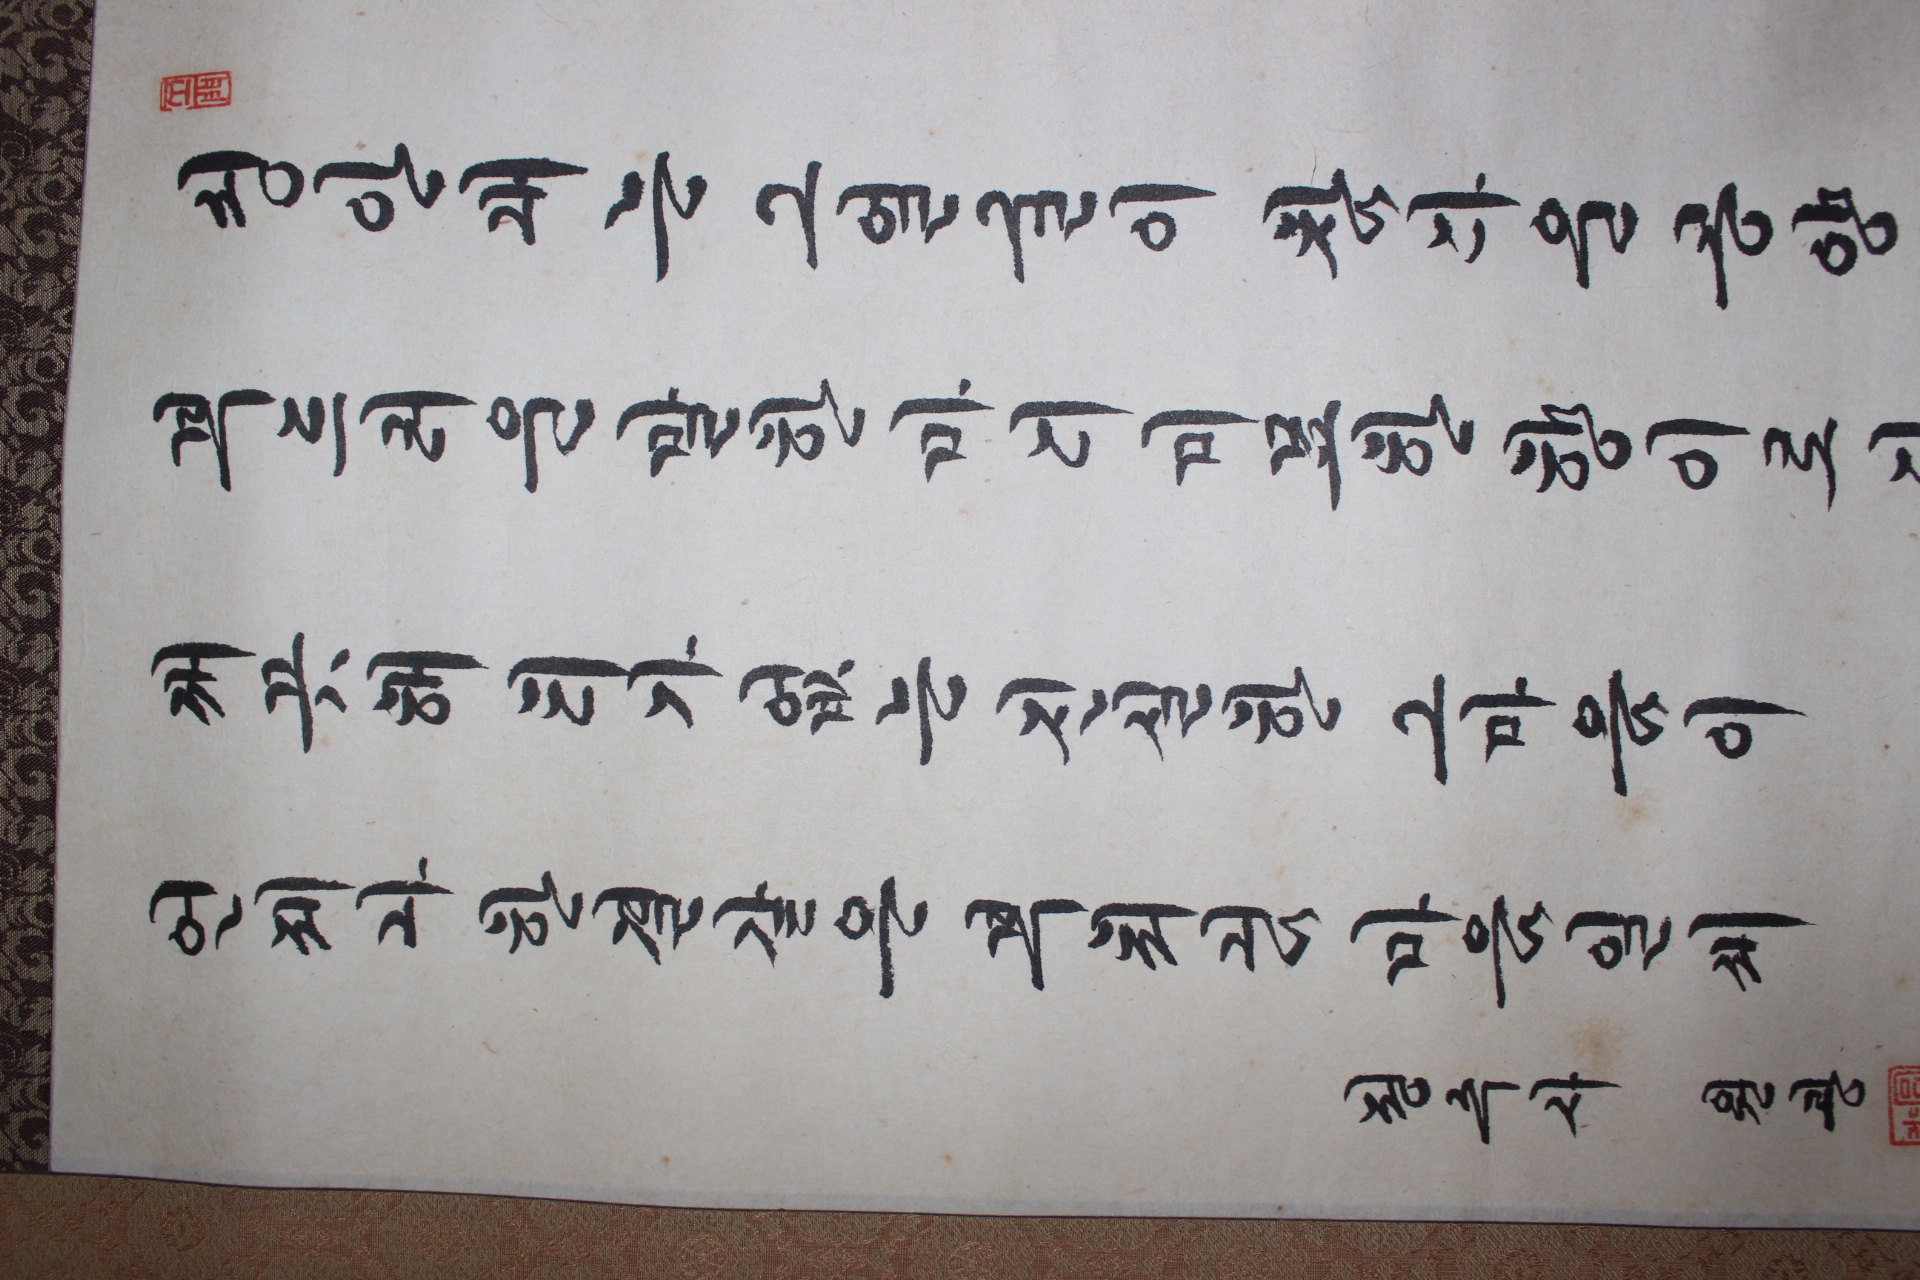 성 안내는 그 얼굴이 참다운 공양
부드러운 말 한마디 미묘한 향이로
깨끗해 티가 없는 진실한 그 마음이
언제나 한결같은 부처님 마음일세
정수사 원광